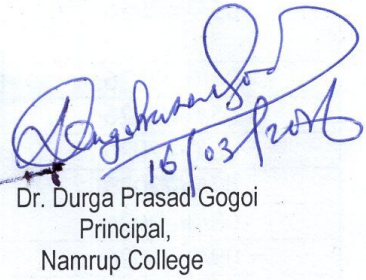 16/03/2016
Dr. Durga Prasad Gogoi
Principal,
Namrup College